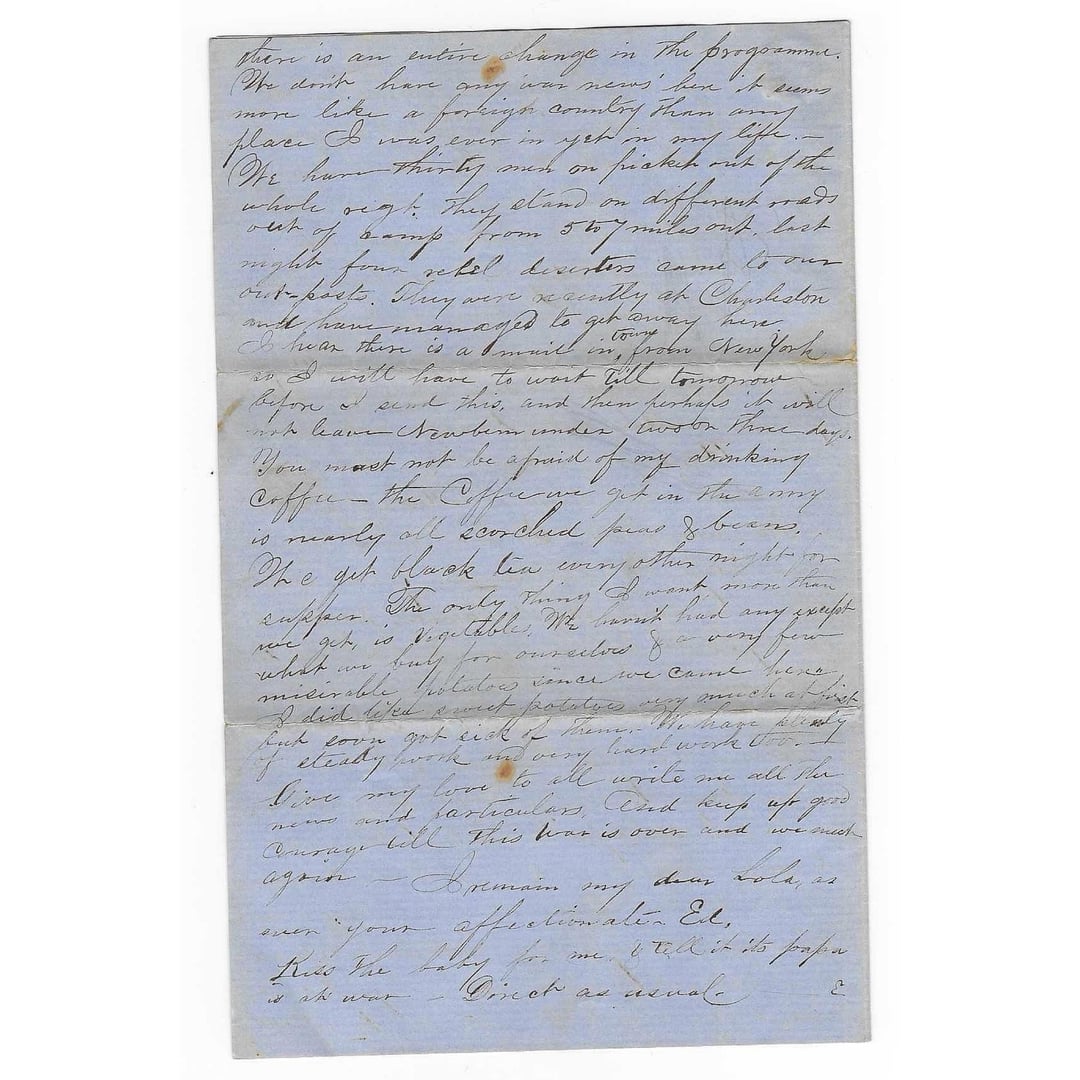 there is an entire change in the programme.
We don't have any war news here it seems
more like a foreign country than any
place I was ever in yet in my life. —
We have thirty men on picket out of the
whole regt. They stand on different roads
out of camp from 5 to 7 miles out. last
night four rebel deserters came to our
out-posts. They were recently at Charleston
and have managed to get away here
I hear there is a mail in town from New York
so I will have to wait till tomorrow
before I send this, and then perhaps it will
not leave Newbern under two or three days.
You must not be afraid of my drinking
coffee — the Coffee we get in the army
is nearly all scorched peas & beans.
We get black tea every other night for
supper. The only thing I want more than
we get, is Vegetables. We havn't had any except
what we buy for ourselves & a very few
misirable potatoes since we came here
I did like sweet potatoes very much at first
but soon got sick of them. We have plenty
of steady work and very hard work too. —
Give my love to all write me all the
news and particulars. And keep up good
courage till this war is over and we meet
again — I remain my dear Lola, as
ever your affectionate Ed.
Kiss the baby for me, & tell it its papa
is at war — Direct as usual. E